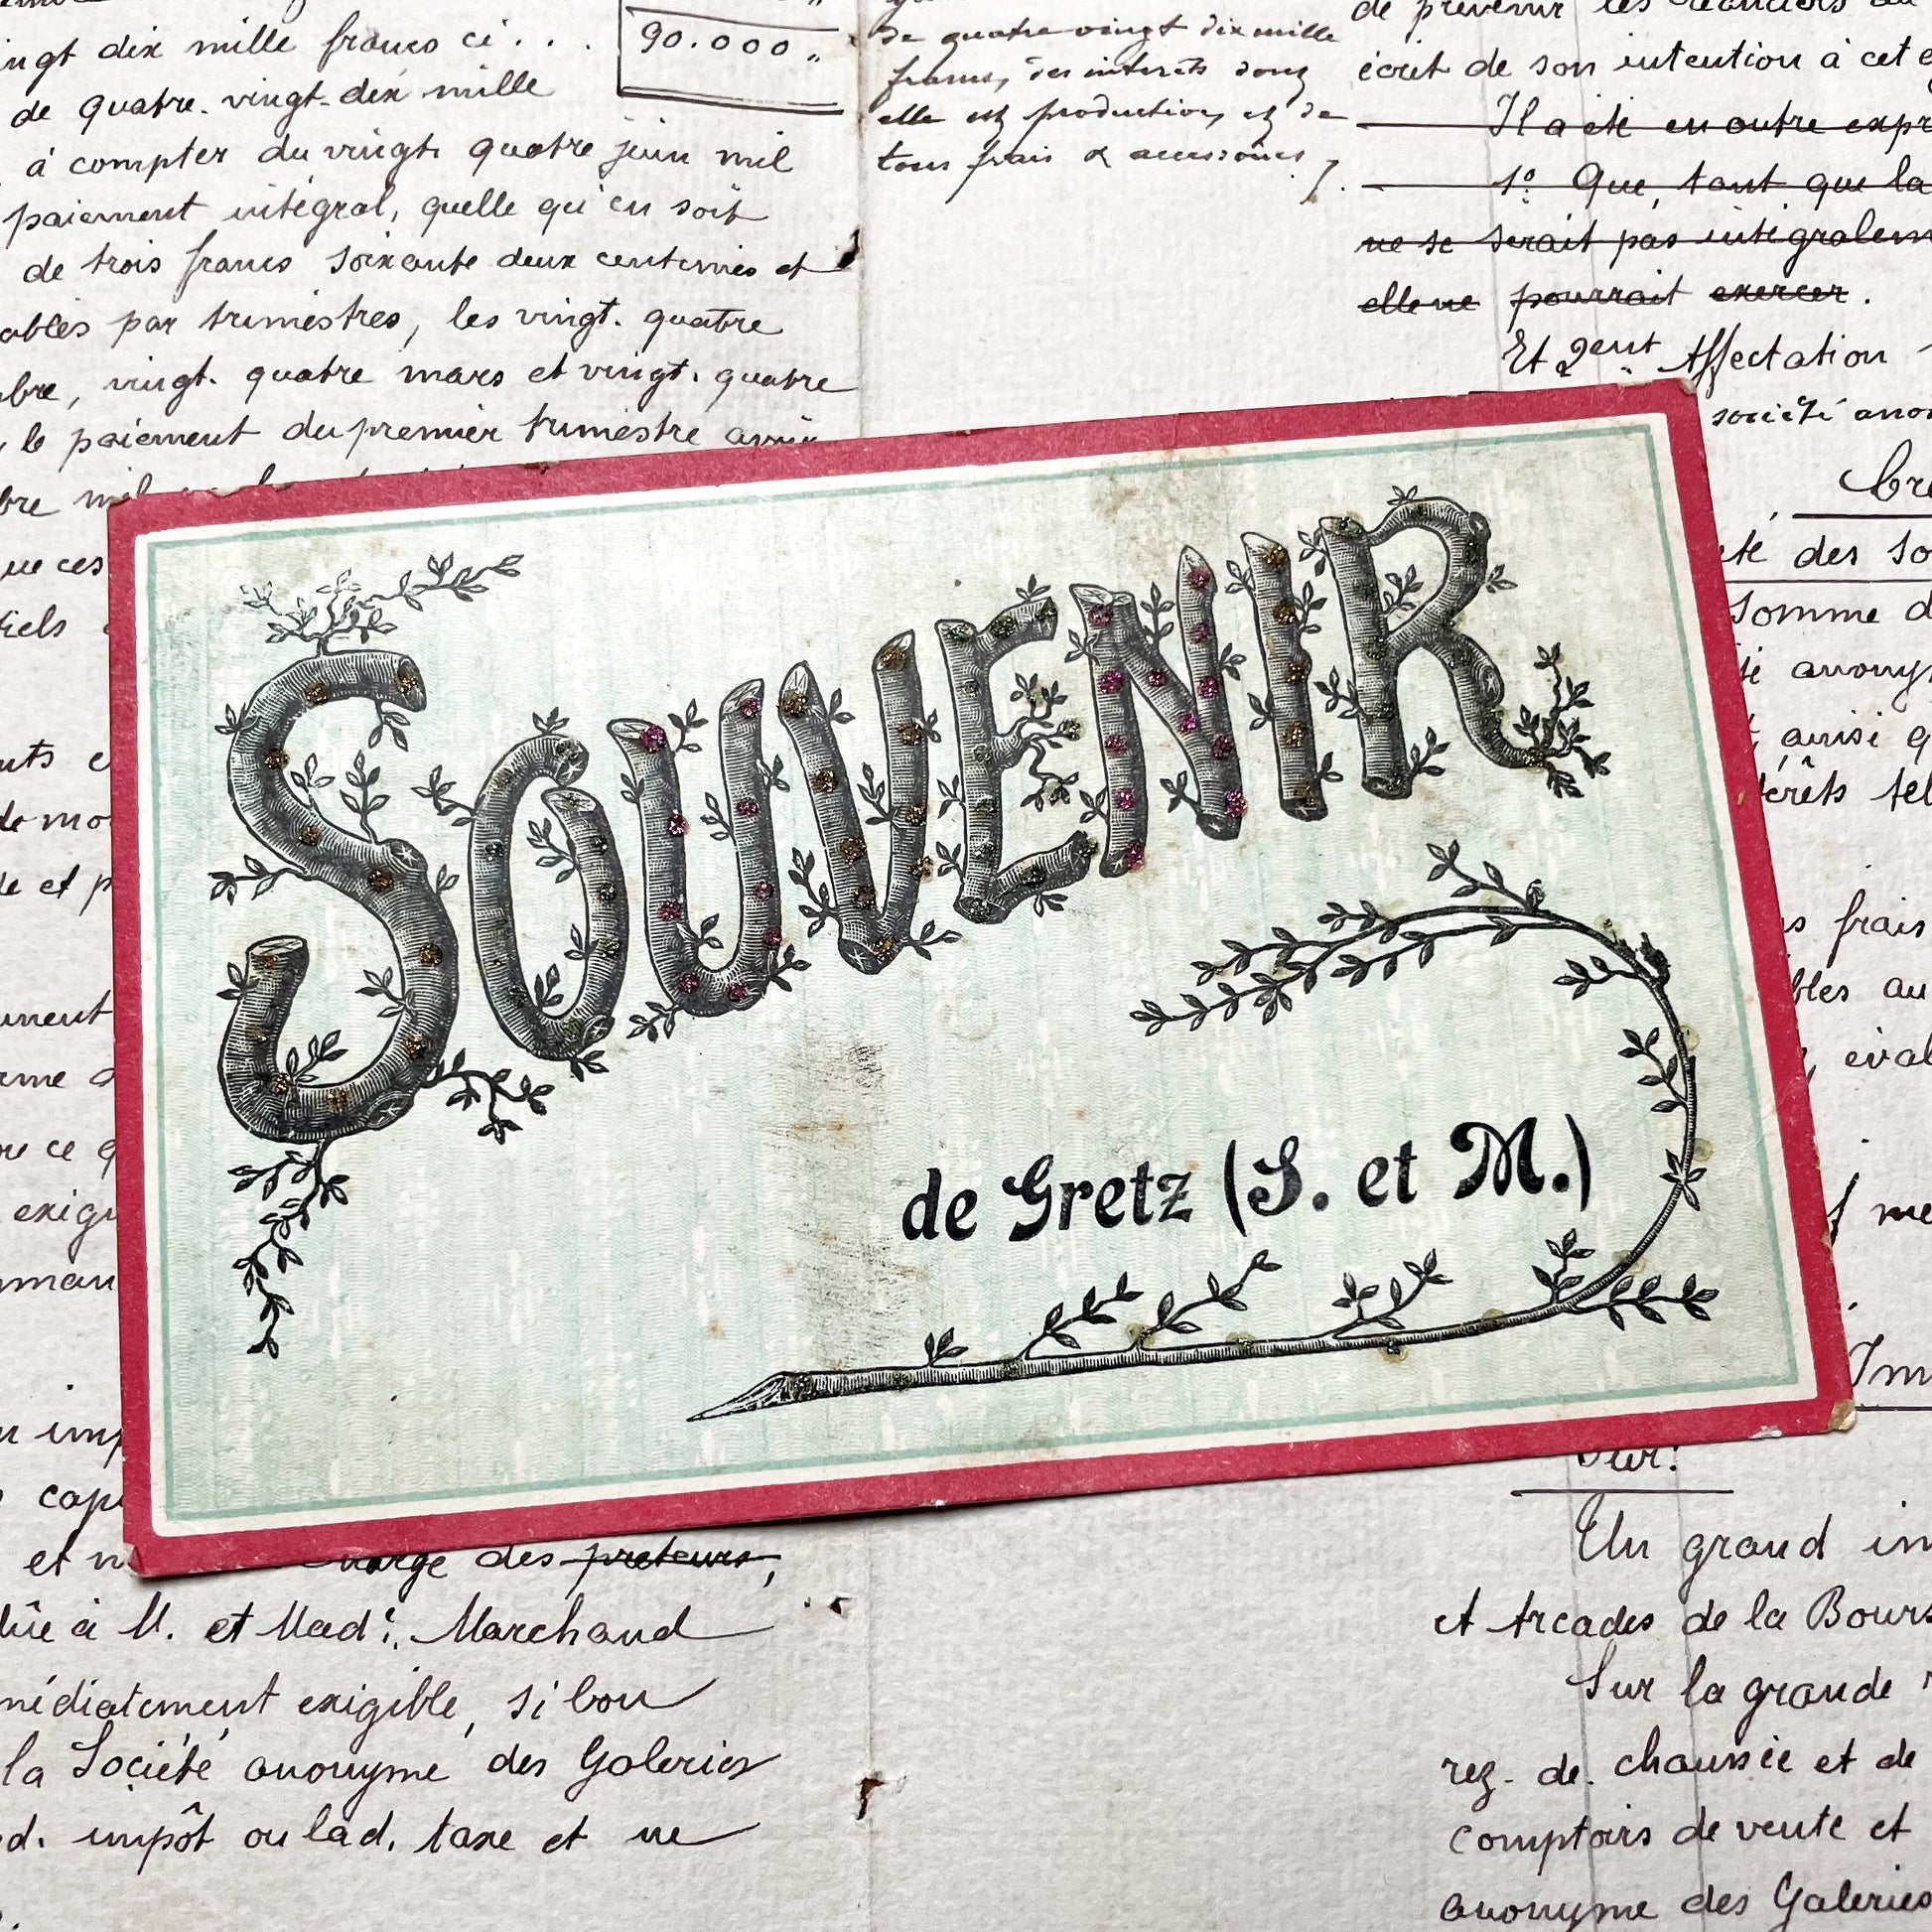 ingt dix mille francs ci . . .
90.000 „
de quatre-vingt-dix mille
à compter du vingt quatre juin mil
paiement intégral, quelle qu'en soit
de trois francs soixante deux centimes et
ables par trimestres, les vingt-quatre
bre, vingt-quatre mars et vingt-quatre
, le paiement du premier trimestre
bre mil
ue ces
de quatre vingt dix mille
francs, des intérêts dont
elle est productive, et de
tous frais & accessoires
de prévenir les
écrit de son intention à cet
Il a été en outre expr
1º Que, tant que la
ne se serait pas intégralem
elle ne pourrait exercer.
Et 2ent Affectation
société anon
té des So
Somme d
té anony
, ainsi q
térêts tel
s frais
bles au
, éval
SOUVENIR
de Gretz (S. et M.)
de mo
de et p
ument
exigi
mman
n imp
capi
et n charge des preteurs,
dûe à M. et Made. Marchand
médiatement exigible, si bon
la Société anonyme des Galeries
d. impôt ou lad. taxe et ne
Sur:
Un grand im
et Arcades de la Bours
Sur la grande
rez-de-chaussée et de
comptoirs de vente et
anonyme des Galeries